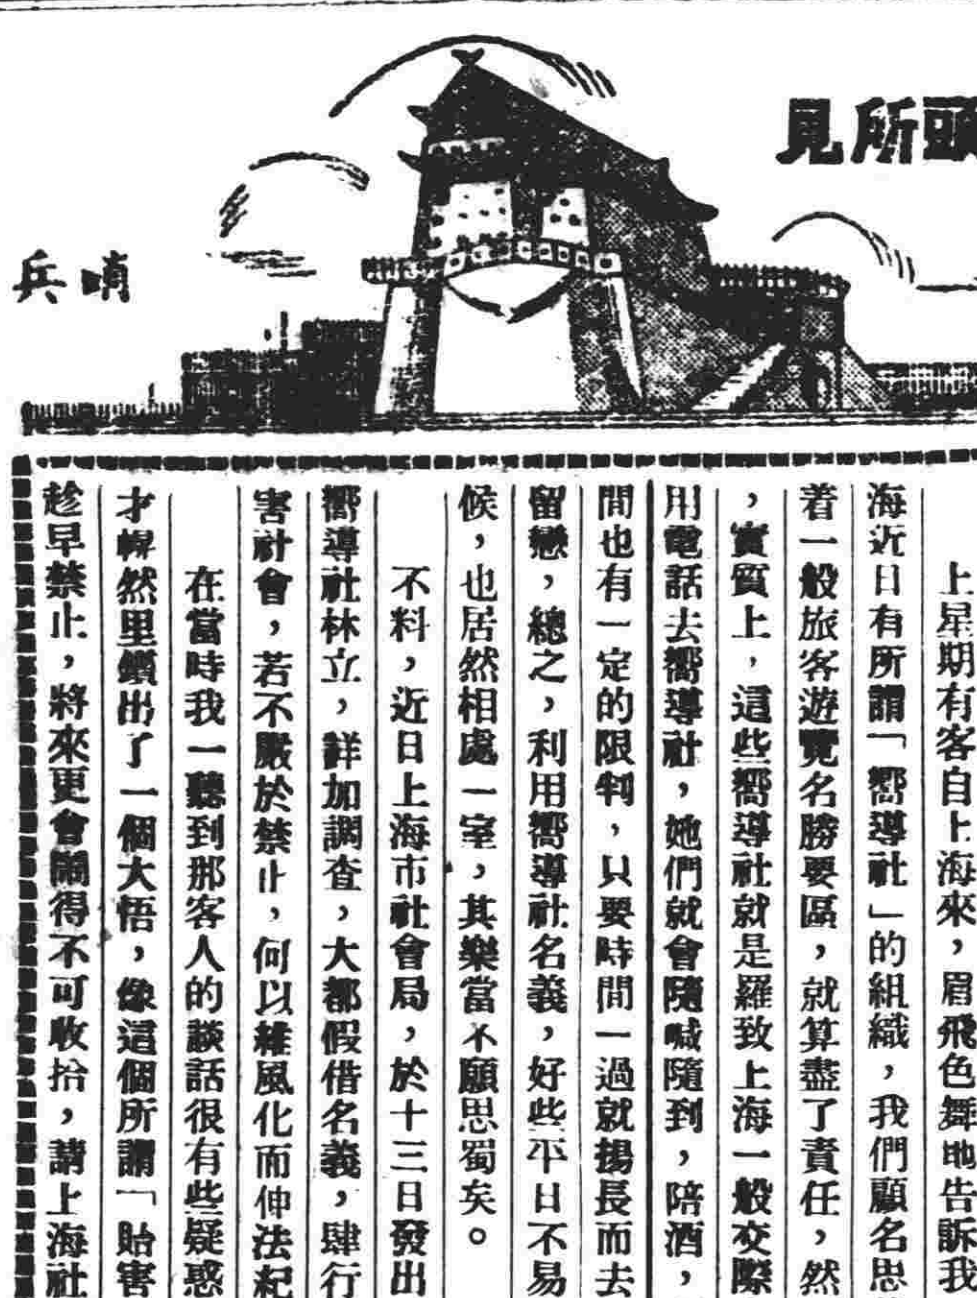 頭所見
哨兵
上星期有客自上海來，眉飛色舞地告訴我
海近日有所謂「嚮導社」的組織，我們顧名思
着一般旅客遊覽名勝要區，就算盡了責任，然
，實質上，這些嚮導社就是羅致上海一般交際
用電話去嚮導社，她們就會隨喊隨到，陪酒，
間也有一定的限制，只要時間一過就揚長而去
留戀，總之，利用嚮導社名義，好些平日不易
候，也居然相處一室，其樂當不願思蜀矣。
不料，近日上海市社會局，於十三日發出
嚮導社林立，詳加調查，大都假借名義，肆行
害社會，若不嚴於禁止，何以維風化而伸法紀
在當時我一聽到那客人的談話很有些疑惑
才幌然里鑽出了一個大悟，像這個所謂「貽害
趁早禁止，將來更會鬧得不可收拾，請上海社